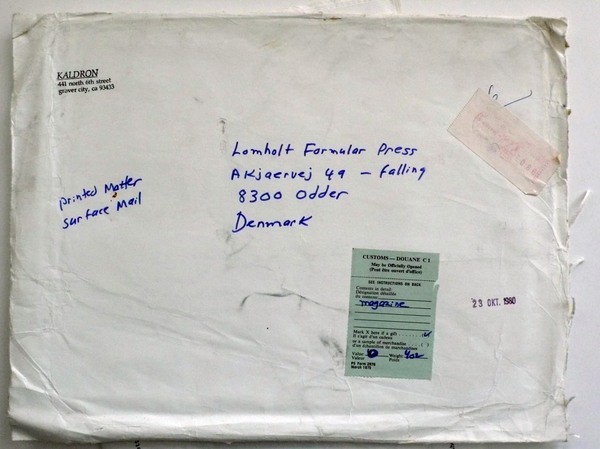 KALDRON
441 north 6th street
grover city, ca 93433
Lomholt Formular Press
Akjaervej 49 – falling
8300 Odder
Denmark
printed Matter
surface Mail
CUSTOMS—DOUANE C 1
May be Officially Opened
(Peut être ouvert d'office)
SEE INSTRUCTIONS ON BACK
Contents in detail:
Désignation détaillée
du contenu:
magazine
Mark X here if a gift
Il s'agit d'un cadeau
or a sample of merchandise ( )
d'un échantillon de marchandises
Value: 0 Weight: 4oz
Valeur Poids
PS Form 2976
March 1976
23 OKT. 1980